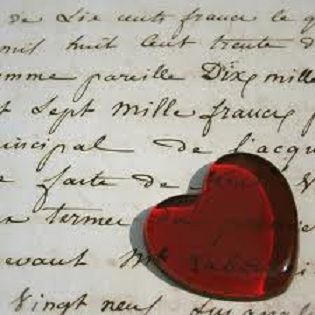 de Six cents francs le q
mil huit cent trente d
omme pareille Dix mille
t Sept mille francs p
incipal de l'acqu
e faite de
termes
evant Me
Vingt neuf